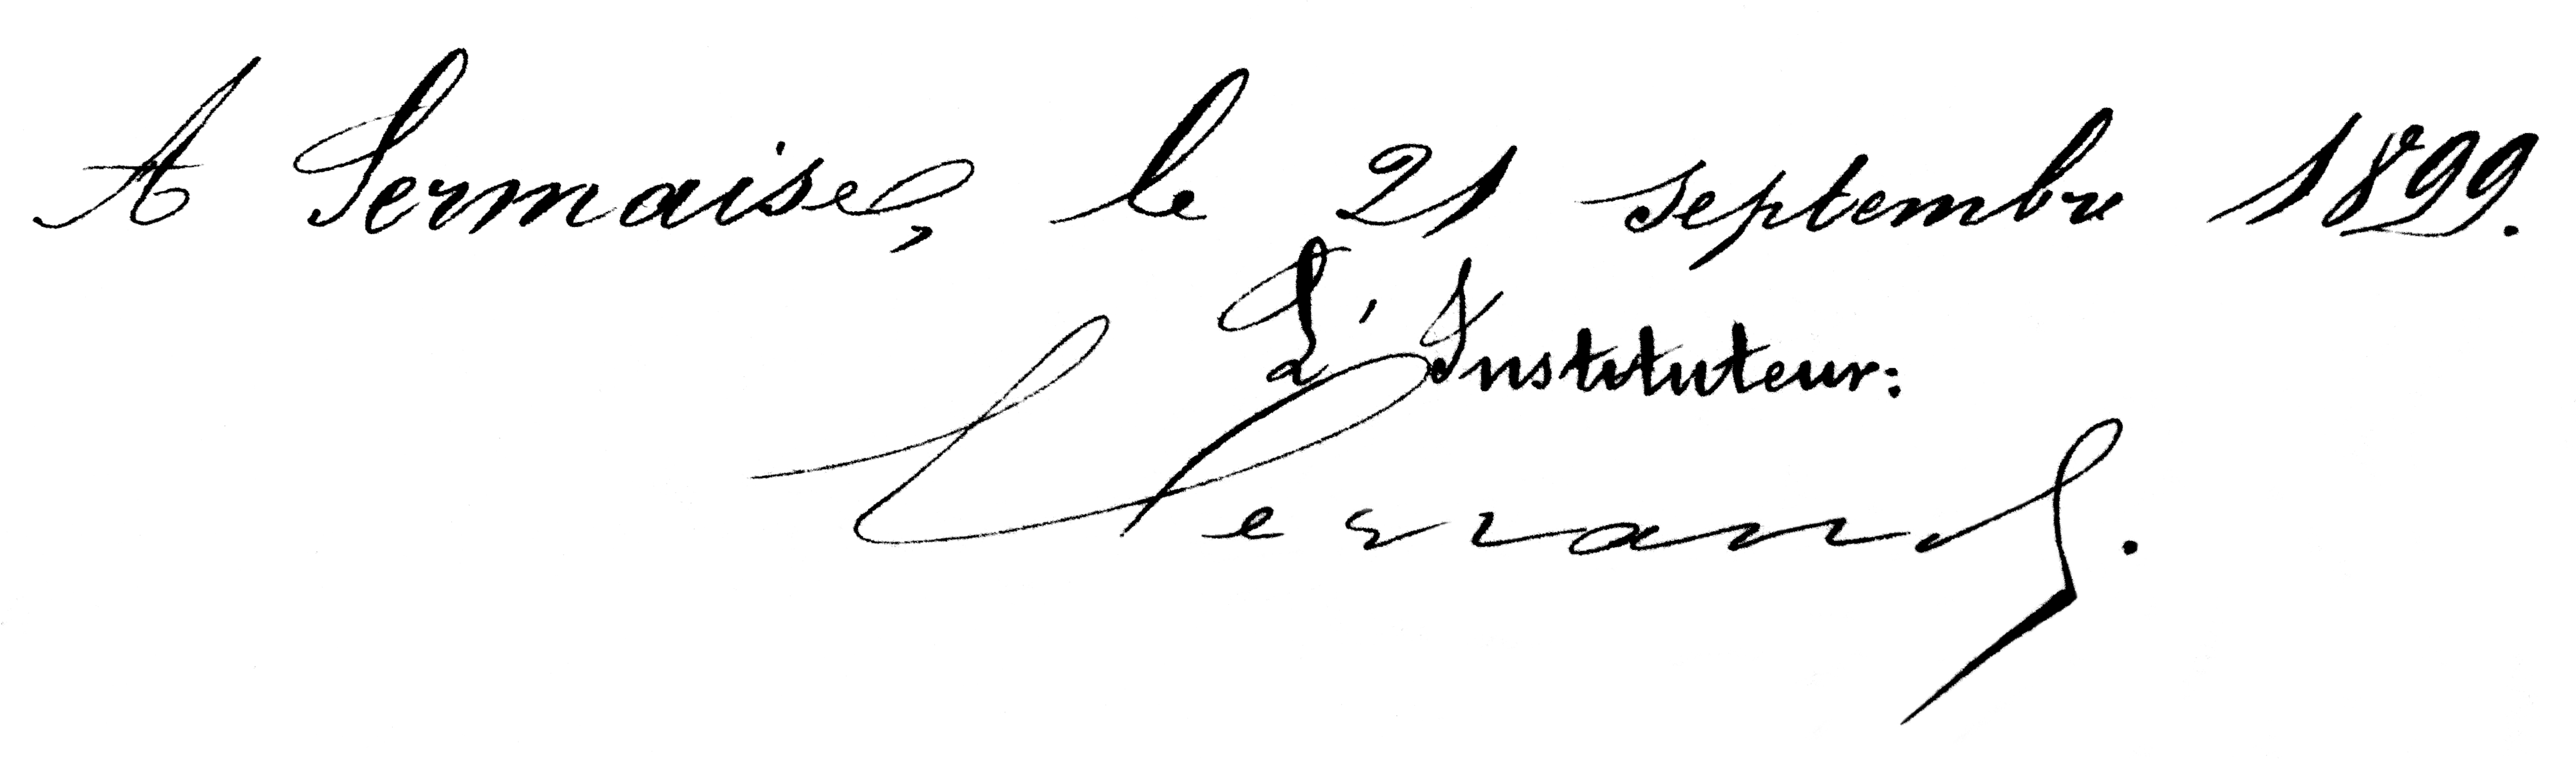 A Sermaise, le 21 septembre 1899.
L'Instituteur: